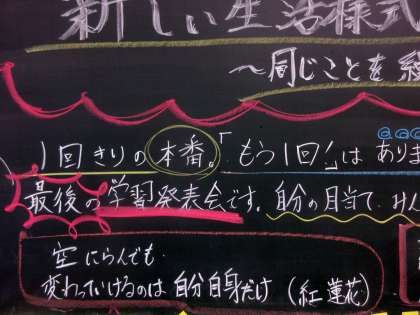 新しい生活様式
〜同じことを
1回きりの本番。「もう1回!」はありま
最後の学習発表会です。自分の目当て、みん
空にらんでも
変わっていけるのは自分自身だけ(紅蓮花)